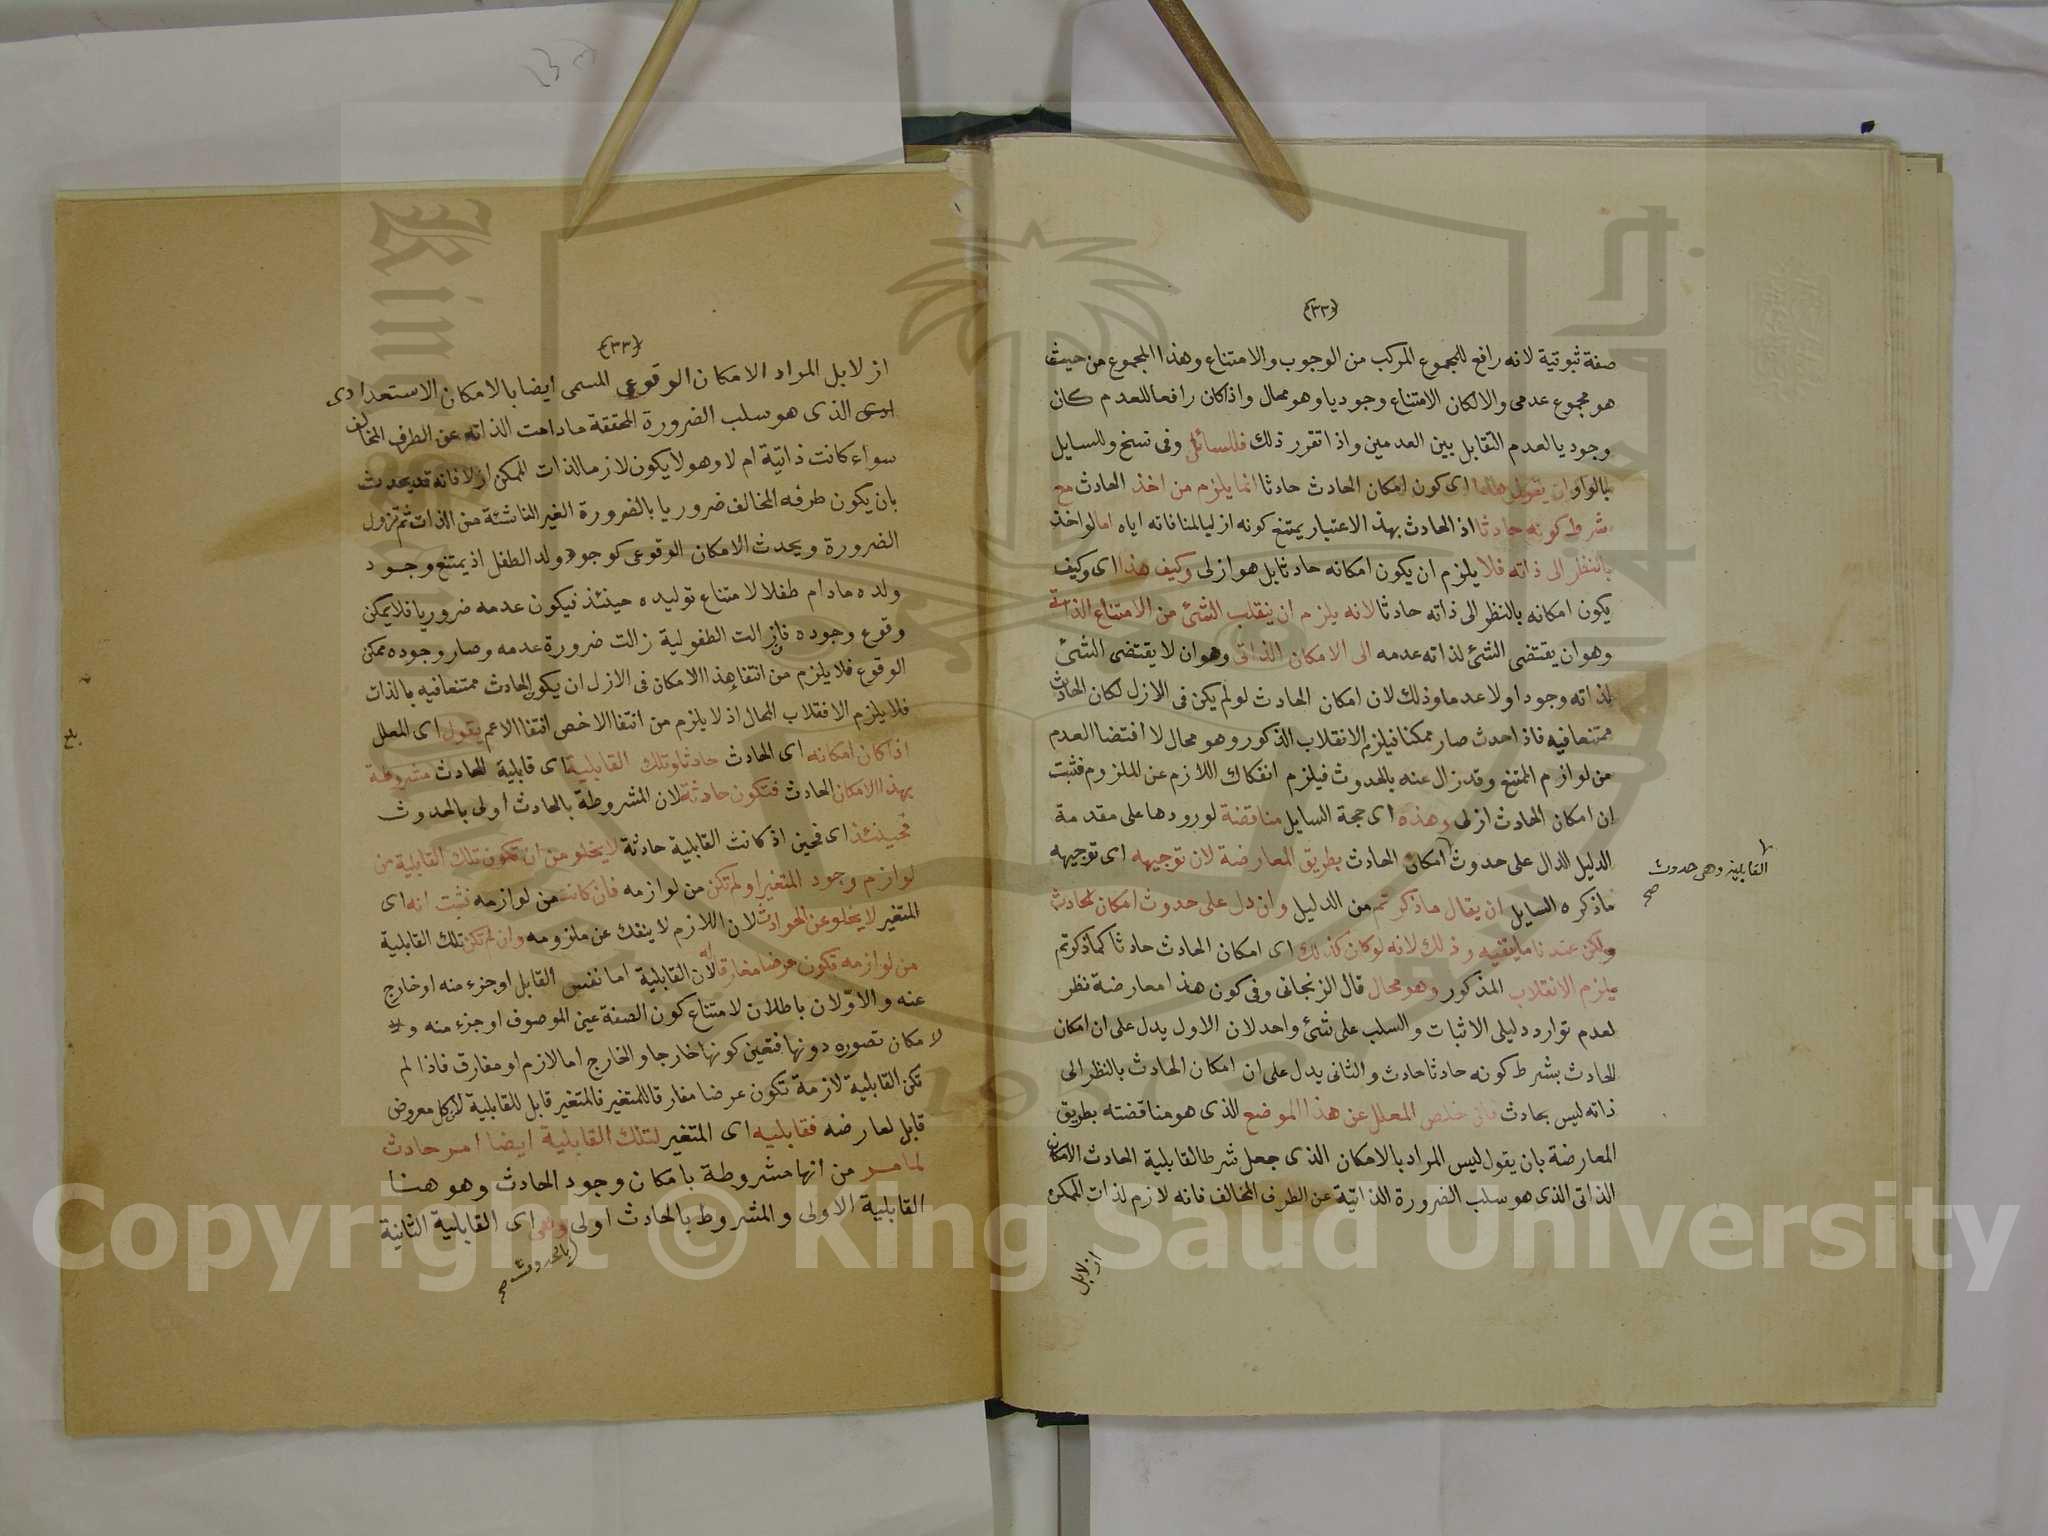 ﴿٣٢﴾
صفة ثبوتية لانه رافع للمجموع المركب من الوجوب والامتناع وهذا المجموع من حيث
هو مجموع عدمى والا لكان الامتناع وجوديا وهو محال واذا كان رافعا للعدم كان
وجوديا لعدم التقابل بين العدمين واذا تقرر ذلك فللسائل وفى نسخ وللسايل
بالواو ان يقول هذا اى كون امكان الحادث حادثا انما يلزم من اخذ الحادث مع
شرط كونه حادثا اذ الحادث بهذ الاعتبار يمتنع كونه ازليا لمنافاته اياه اما لو اخذ
بالنظر الى ذاته فلا يلزم ان يكون امكانه حادثا بل هو ازلى وكيف هذا اى وكيف
يكون امكانه بالنظر الى ذاته حادثا لانه يلزم ان ينقلب الشئ من الامتناع الذاتى
وهو ان يقتضى الشئ لذاته عدمه الى الامكان الذاتى وهو ان لا يقتضى الشئ
لذاته وجودا ولا عدما وذلك لان امكان الحادث لو لم يكن فى الازل لكان الحادث
ممتنعا فيه فاذا حدث صار ممكنا فيلزم الانقلاب المذكور وهو محال لا اقتضا العدم
من لوازم الممتنع وقد زال عنه بالحدوث فيلزم انفكاك اللازم عن الملزوم فثبت
ان امكان الحادث ازلى وهذه اى حجة السايل مناقضة لورودها على مقدمة
الدليل الدال على حدوث امكان الحادث بطريق المعارضة لان توجيهه اى توجيه
القابلية وهى حدوث صح
ما ذكره السايل ان يقال ما ذكرتم من الدليل وان دل على حدوث امكان الحادث
ولكن عندنا ما ينفيه وذلك لانه لو كان كذلك اى امكان الحادث حادثا كما ذكرتم
يلزم الانقلاب المذكور وهو محال قال الزنجانى وفى كون هذا معارضة نظر
لعدم توارد دليلى الاثبات والسلب على شئ واحد لان الاول يدل على ان امكان
الحادث بشرط كونه حادثا حادث والثانى يدل على ان امكان الحادث بالنظر الى
ذاته ليس بحادث فان خلص المعلل عن هذا الموضع الذى هو مناقضته بطريق
المعارضة بان يقول ليس المراد بالامكان الذى جعل شرطا لقابلية الحادث الامكان
الذاتى الذى هو سلب الضرورة الذاتية عن الطرف المخالف فانه لازم لذات الممكن
ازلا بل
﴿٣٣﴾
ازلا بل المراد الامكان الوقوعى المسمى ايضا بالامكان الاستعدادى
الذى هو سلب الضرورة المحققة ما دامت الذات عن الطرف المخالف
سواء كانت ذاتية ام لا وهو لا يكون لازما لذات الممكن ازلا فانه قد يحدث
بان يكون طرفه المخالف ضروريا بالضرورة الغير الناشئة من الذات ثم تزول
الضرورة ويحدث الامكان الوقوعى كوجود ولد الطفل اذ يمتنع وجود
ولده مادام طفلا لامتناع توليده حينئذ فيكون عدمه ضروريا فلا يمكن
وقوع وجوده فان زالت الطفولية زالت ضرورة عدمه وصار وجوده ممكن
الوقوع فلا يلزم من انتفا هذا الامكان فى الازل ان يكون الحادث ممتنعا فيه بالذات
فلا يلزم الانقلاب المحال اذ لا يلزم من انتفا الاخص انتفا الاعم يقول اى المعلل
اذا كان امكانه اى الحادث حادثا وتلك القابلية اى قابلية الحادث مشروطة
بهذا الامكان الحادث فتكون حادثة لان المشروطة بالحادث اولى بالحدوث
فحينئذ اى فحين اذ كانت القابلية حادثة لا يخلو من ان تكون تلك القابلية من
لوازم وجود المتغير او لم تكن من لوازمه فان كانت من لوازمه ثبت انه اى
المتغير لا يخلو عن الحوادث لان اللازم لا ينفك عن ملزومه وان لم تكن تلك القابلية
من لوازمه تكون عرضا مفارقا لان القابلية اما نفس القابل او جزء منه او خارج
عنه والاولان باطلان لامتناع كون الصفة عين الموصوف او جزء منه و
لامكان تصوره دونها فتعين كونها خارجا والخارج اما لازم او مفارق فاذا لم
تكن القابلية لازمة تكون عرضا مفارقا للمتغير فالمتغير قابل للقابلية لان كل معروض
قابل لعارضه فقابليه اى المتغير لتلك القابلية ايضا امر حادث
لما مر من انها مشروطة بامكان وجود الحادث وهو هنا
القابلية الاولى والمشروط بالحادث اولى وهى اى القابلية الثانية
بالحدوث صح
بلغ
Copyright © King Saud University